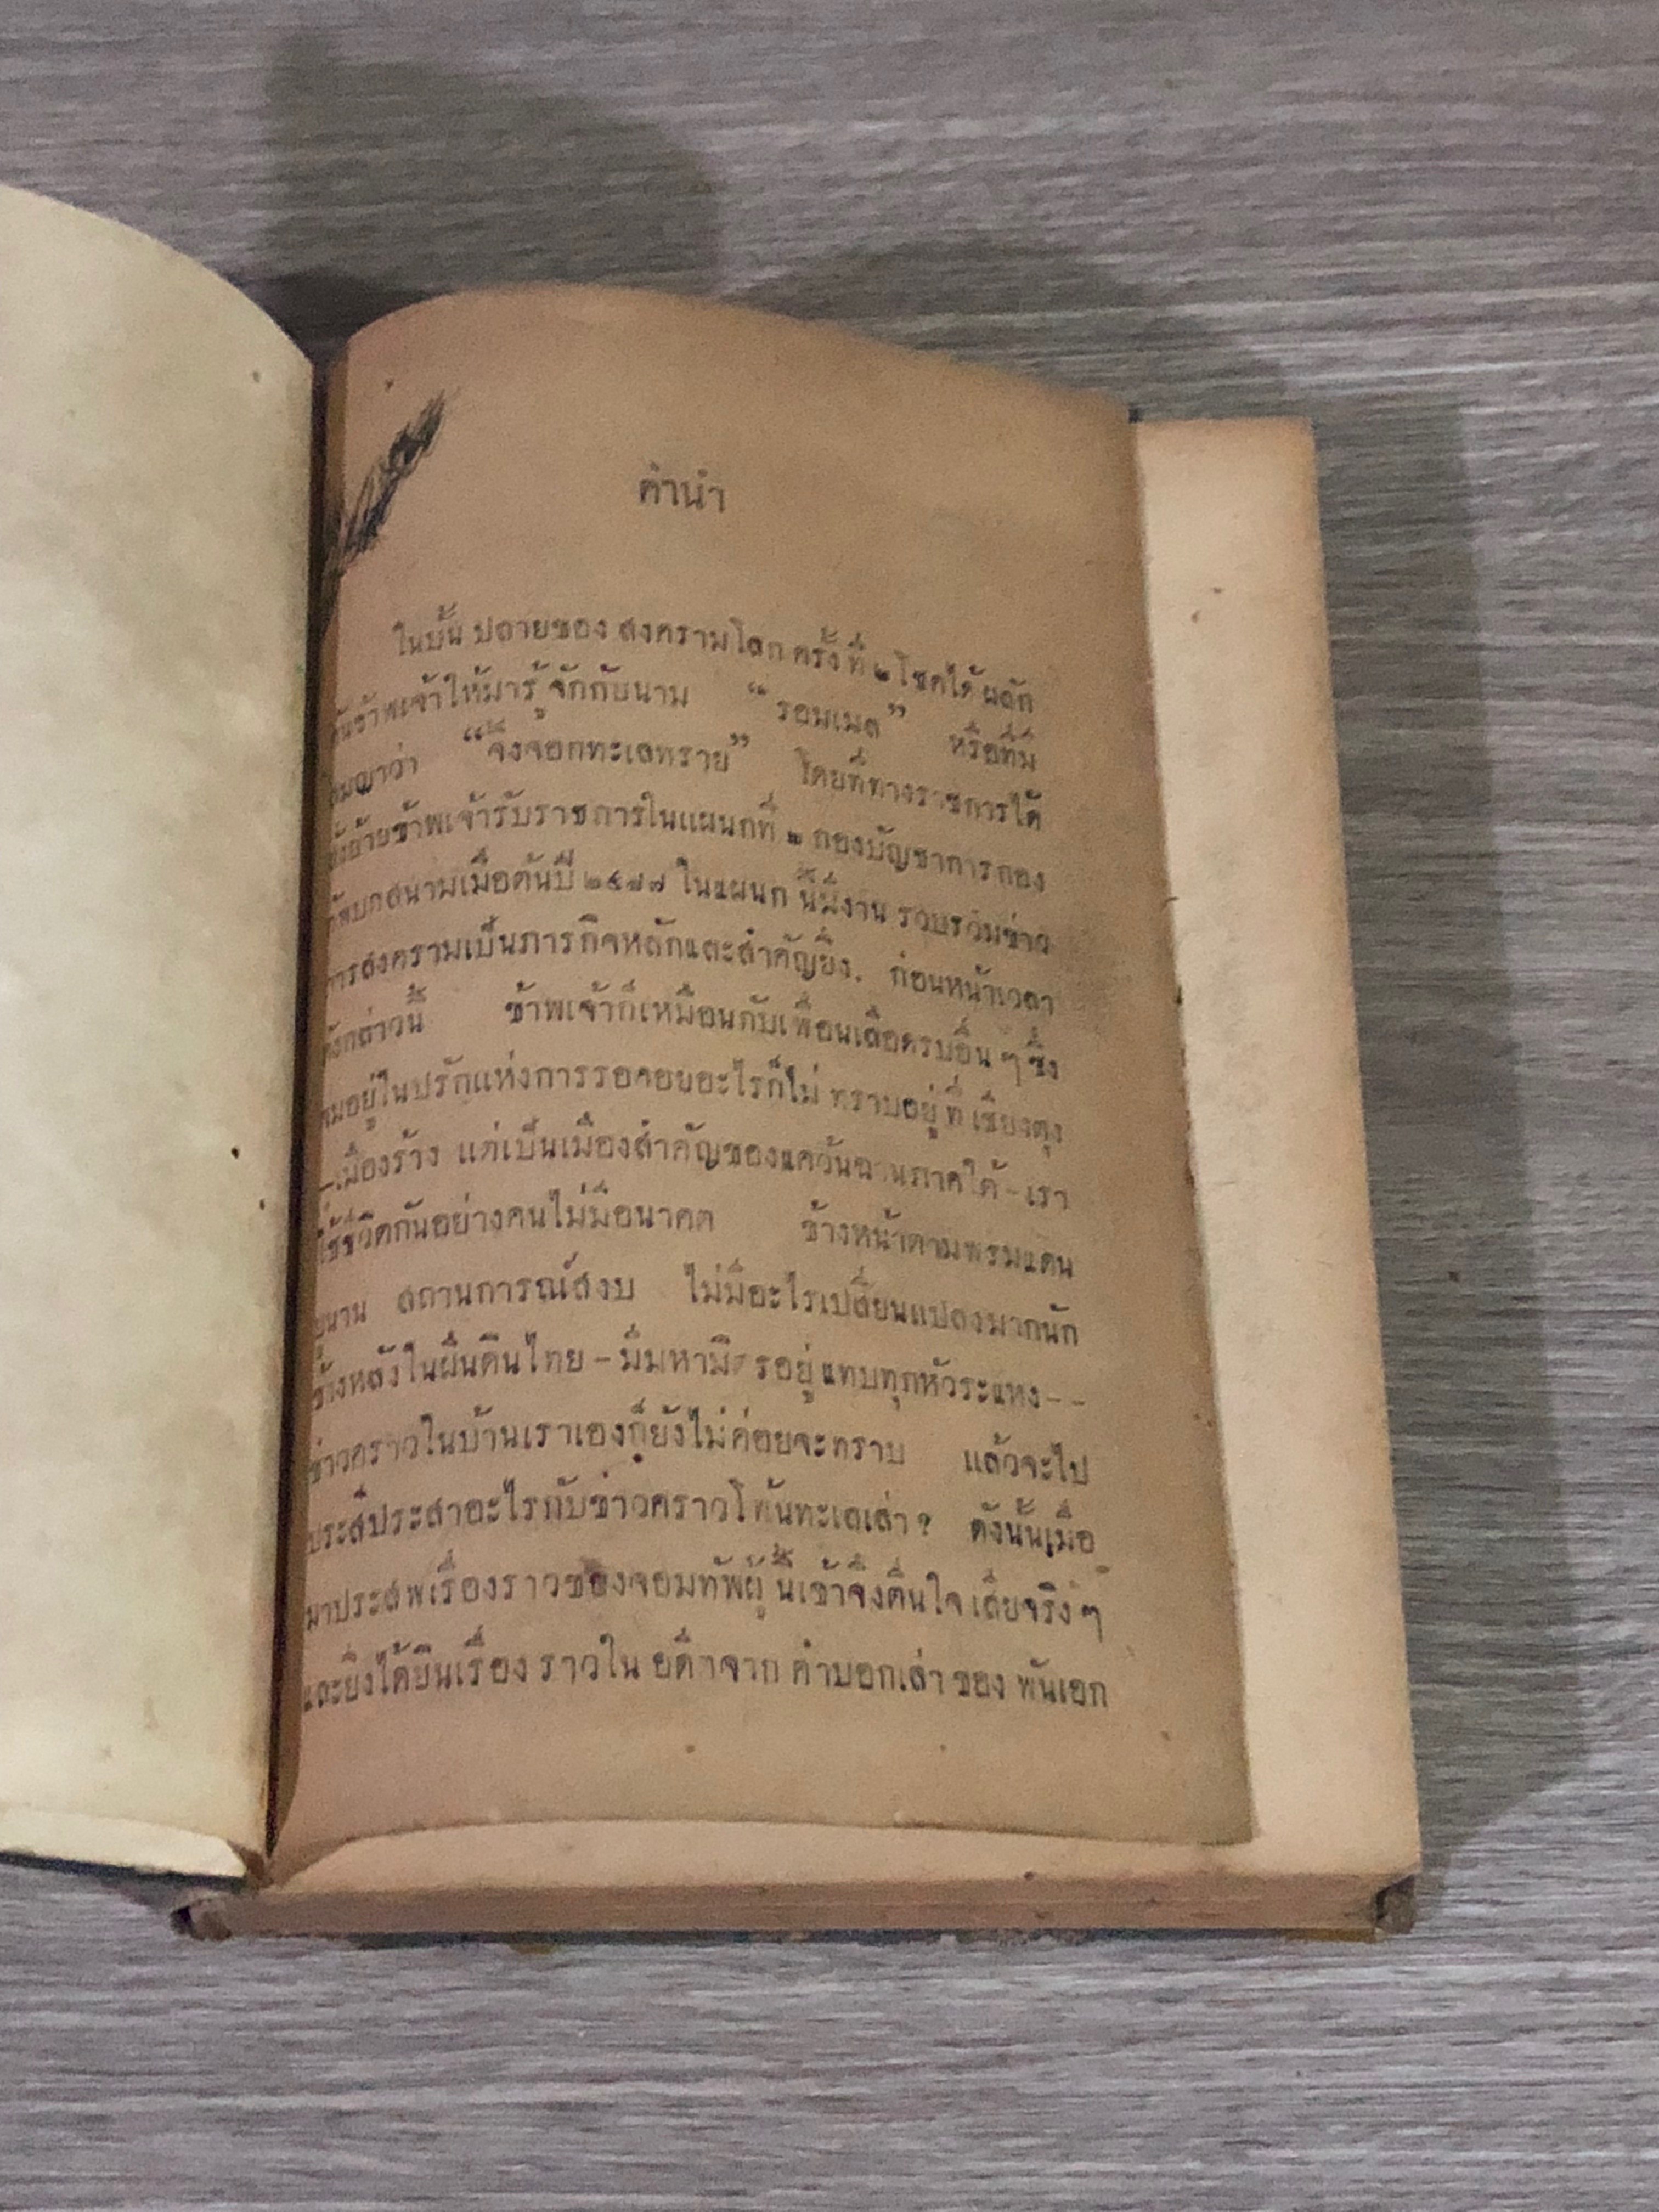 คำนำ
ในบั้นปลายของสงครามโลกครั้งที่ ๒ โชคได้ผลัก
ดันข้าพเจ้าให้มารู้จักกับนาม “รอมเมล” หรือที่มี
สมญาว่า “จิ้งจอกทะเลทราย” โดยที่ทางราชการได้
สั่งย้ายข้าพเจ้ารับราชการในแผนกที่ ๒ กองบัญชาการกอง
ทัพบกสนามเมื่อต้นปี ๒๔๗๗ ในแผนกนี้มีงานรวบรวมข่าว
การสงครามเป็นภารกิจหลักและสำคัญยิ่ง. ก่อนหน้าเวลา
ดังกล่าวนี้ ข้าพเจ้าก็เหมือนกับเพื่อนเลือดรบอื่น ๆ ซึ่ง
จมอยู่ในปรักแห่งการรอคอยอะไรก็ไม่ทราบอยู่ที่เชียงตุง
—เมืองร้าง แต่เป็นเมืองสำคัญของแคว้นฉานภาคใต้–เรา
ใช้ชีวิตกันอย่างคนไม่มีอนาคต ข้างหน้าตามพรมแดน
ยูนาน สถานการณ์สงบ ไม่มีอะไรเปลี่ยนแปลงมากนัก
ข้างหลังในผืนดินไทย–มีมหามิตรอยู่แทบทุกหัวระแหง--
ข่าวคราวในบ้านเราเองก็ยังไม่ค่อยจะทราบ แล้วจะไป
ประสีประสาอะไรกับข่าวคราวโพ้นทะเลเล่า? ดังนั้นเมื่อ
มาประสพเรื่องราวของจอมทัพผู้นี้เข้าจึงตื่นใจเสียจริง ๆ
และยิ่งได้ยินเรื่องราวในอดีตจากคำบอกเล่าของ พันเอก